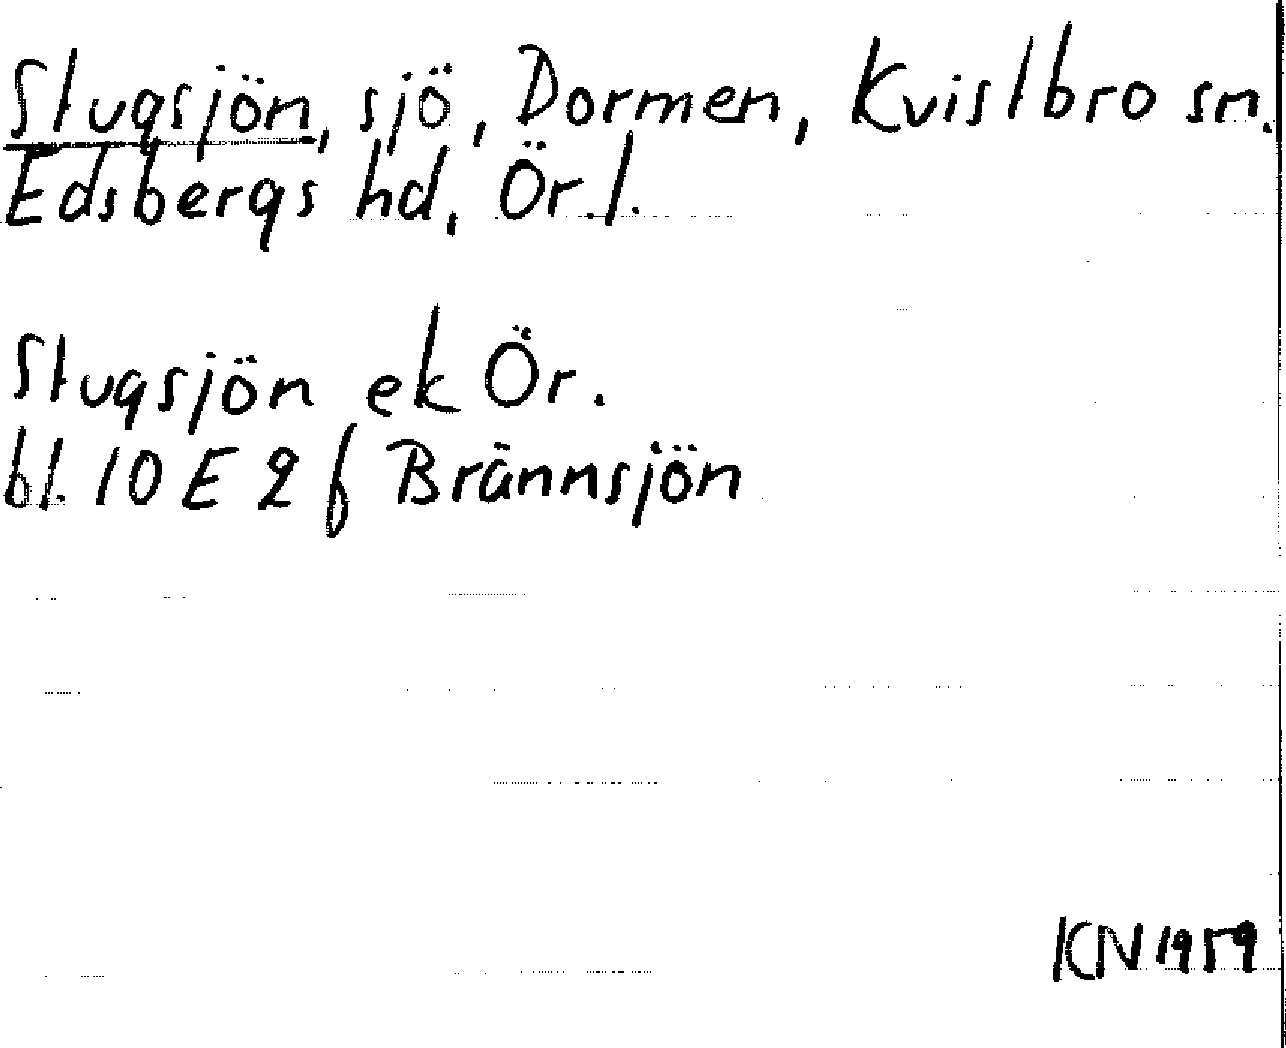 Stugsjön, sjö, Dormen, Kvistbro sn.
Edsbergs hd, Ör.l.
Stugsjön ek Ör.
bl. 10 E 2 f Brännsjön
KN 1959